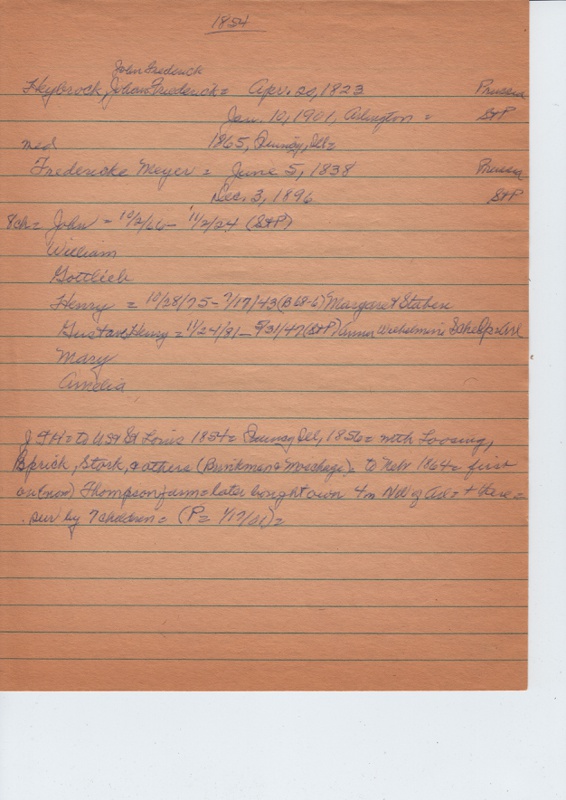 1854
John Frederick
Heybrock, Johan Friederick = Apr. 20, 1823 Prussia
Jan. 10, 1901, Arlington = StP
med 1865, Quincy, Ill =
Fredericke Meyer = June 5, 1838 Prussia
Dec. 3, 1896 StP
8ch = John = 10/2/66 - 11/2/24 (StP)
William
Gottlieb
Henry = 10/28/75 - 7/17/43 (B 68-6) Margaret Stuben
Gustave Henry = 11/24/81 - 5/31/47 (StP) Anna Wilhelmina
Mary
Amelia
J F H = to US & St Louis 1854 = Quincy Ill, 1856 = with Loosing,
Eprick, Stork, & others (Bunkman & ) = to Nebr 1864 = first
on (now) Thompson farm = later bought own 4m NW of Arl = + there =
sur by 7 children = (P = 1/17/01) =